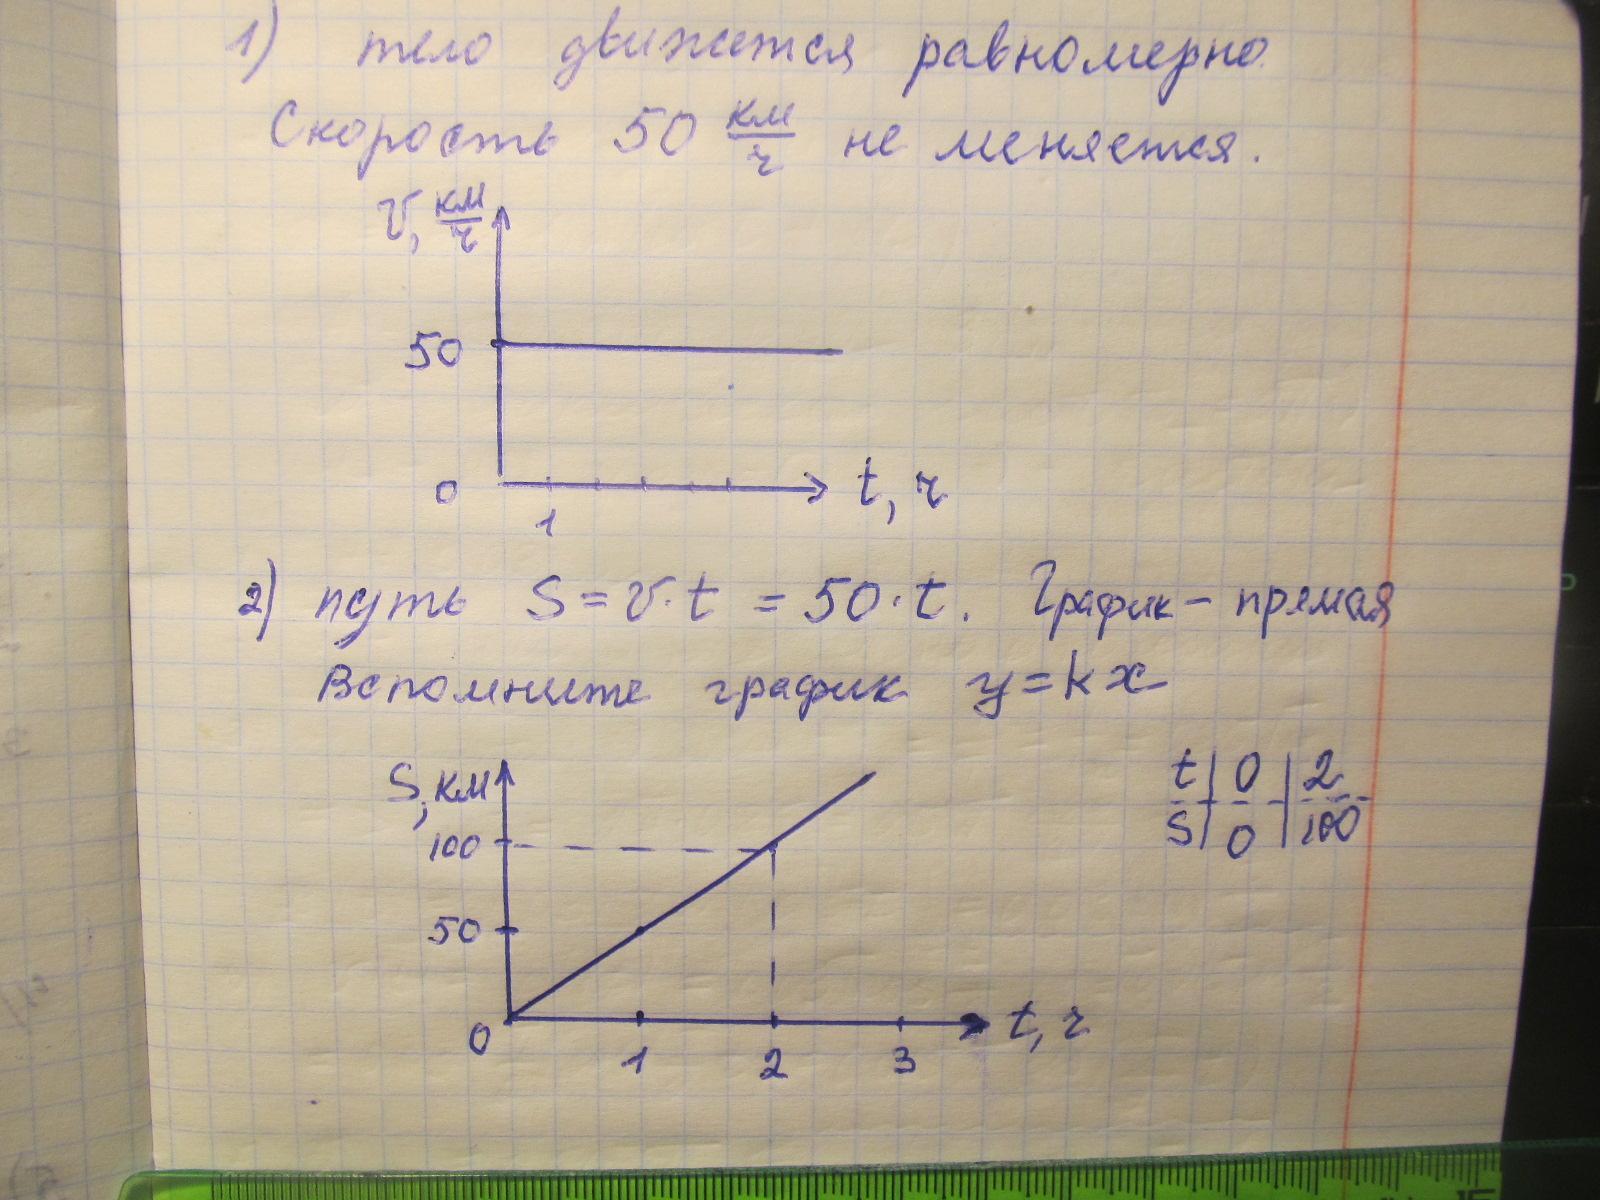 1) тело движется равномерно.
Скорость 50 км/ч не меняется.
v, км/ч
50
0
1
t, ч
2) путь S = v·t = 50·t. График – прямая
Вспомните график y = kx
S, км
100
50
0
1 2 3
t, ч
t | 0 | 2
S | 0 | 100